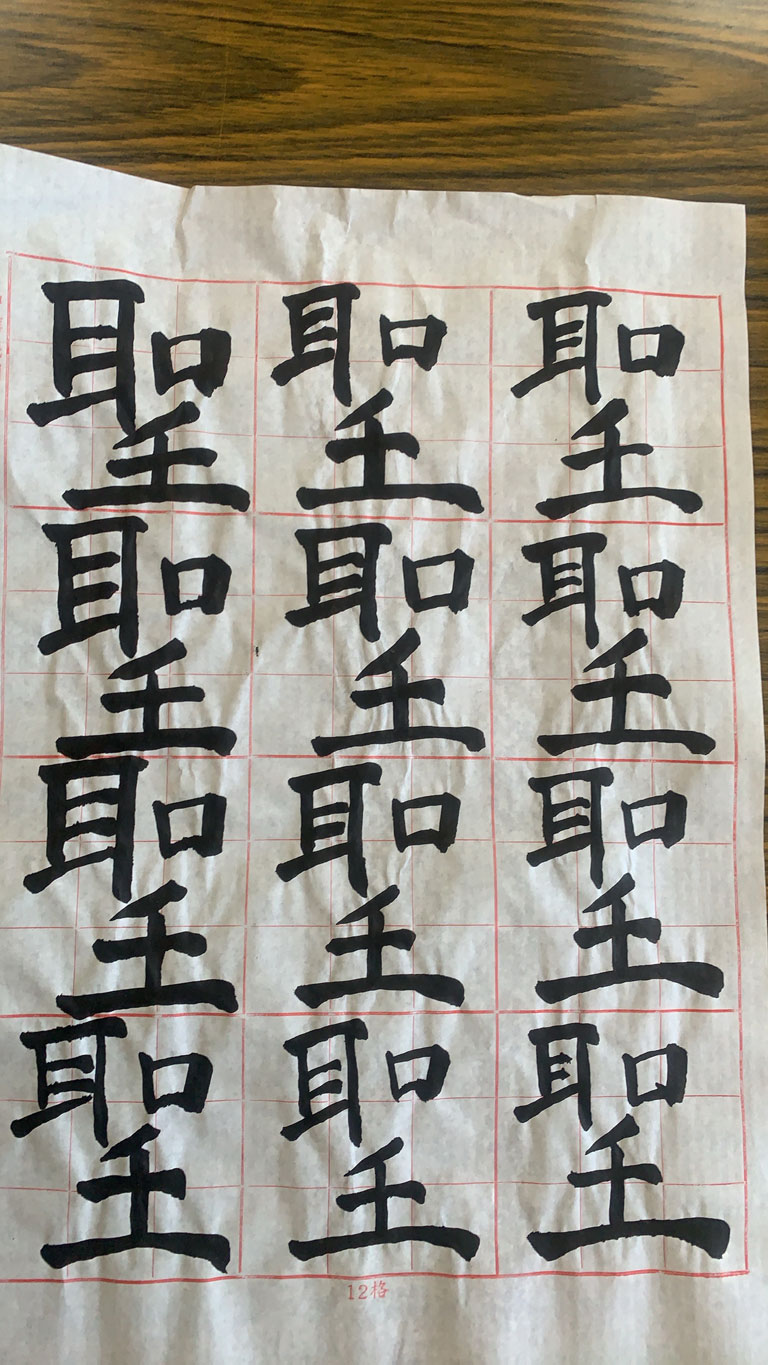 聖聖聖
聖聖聖
聖聖聖
聖聖聖
12格